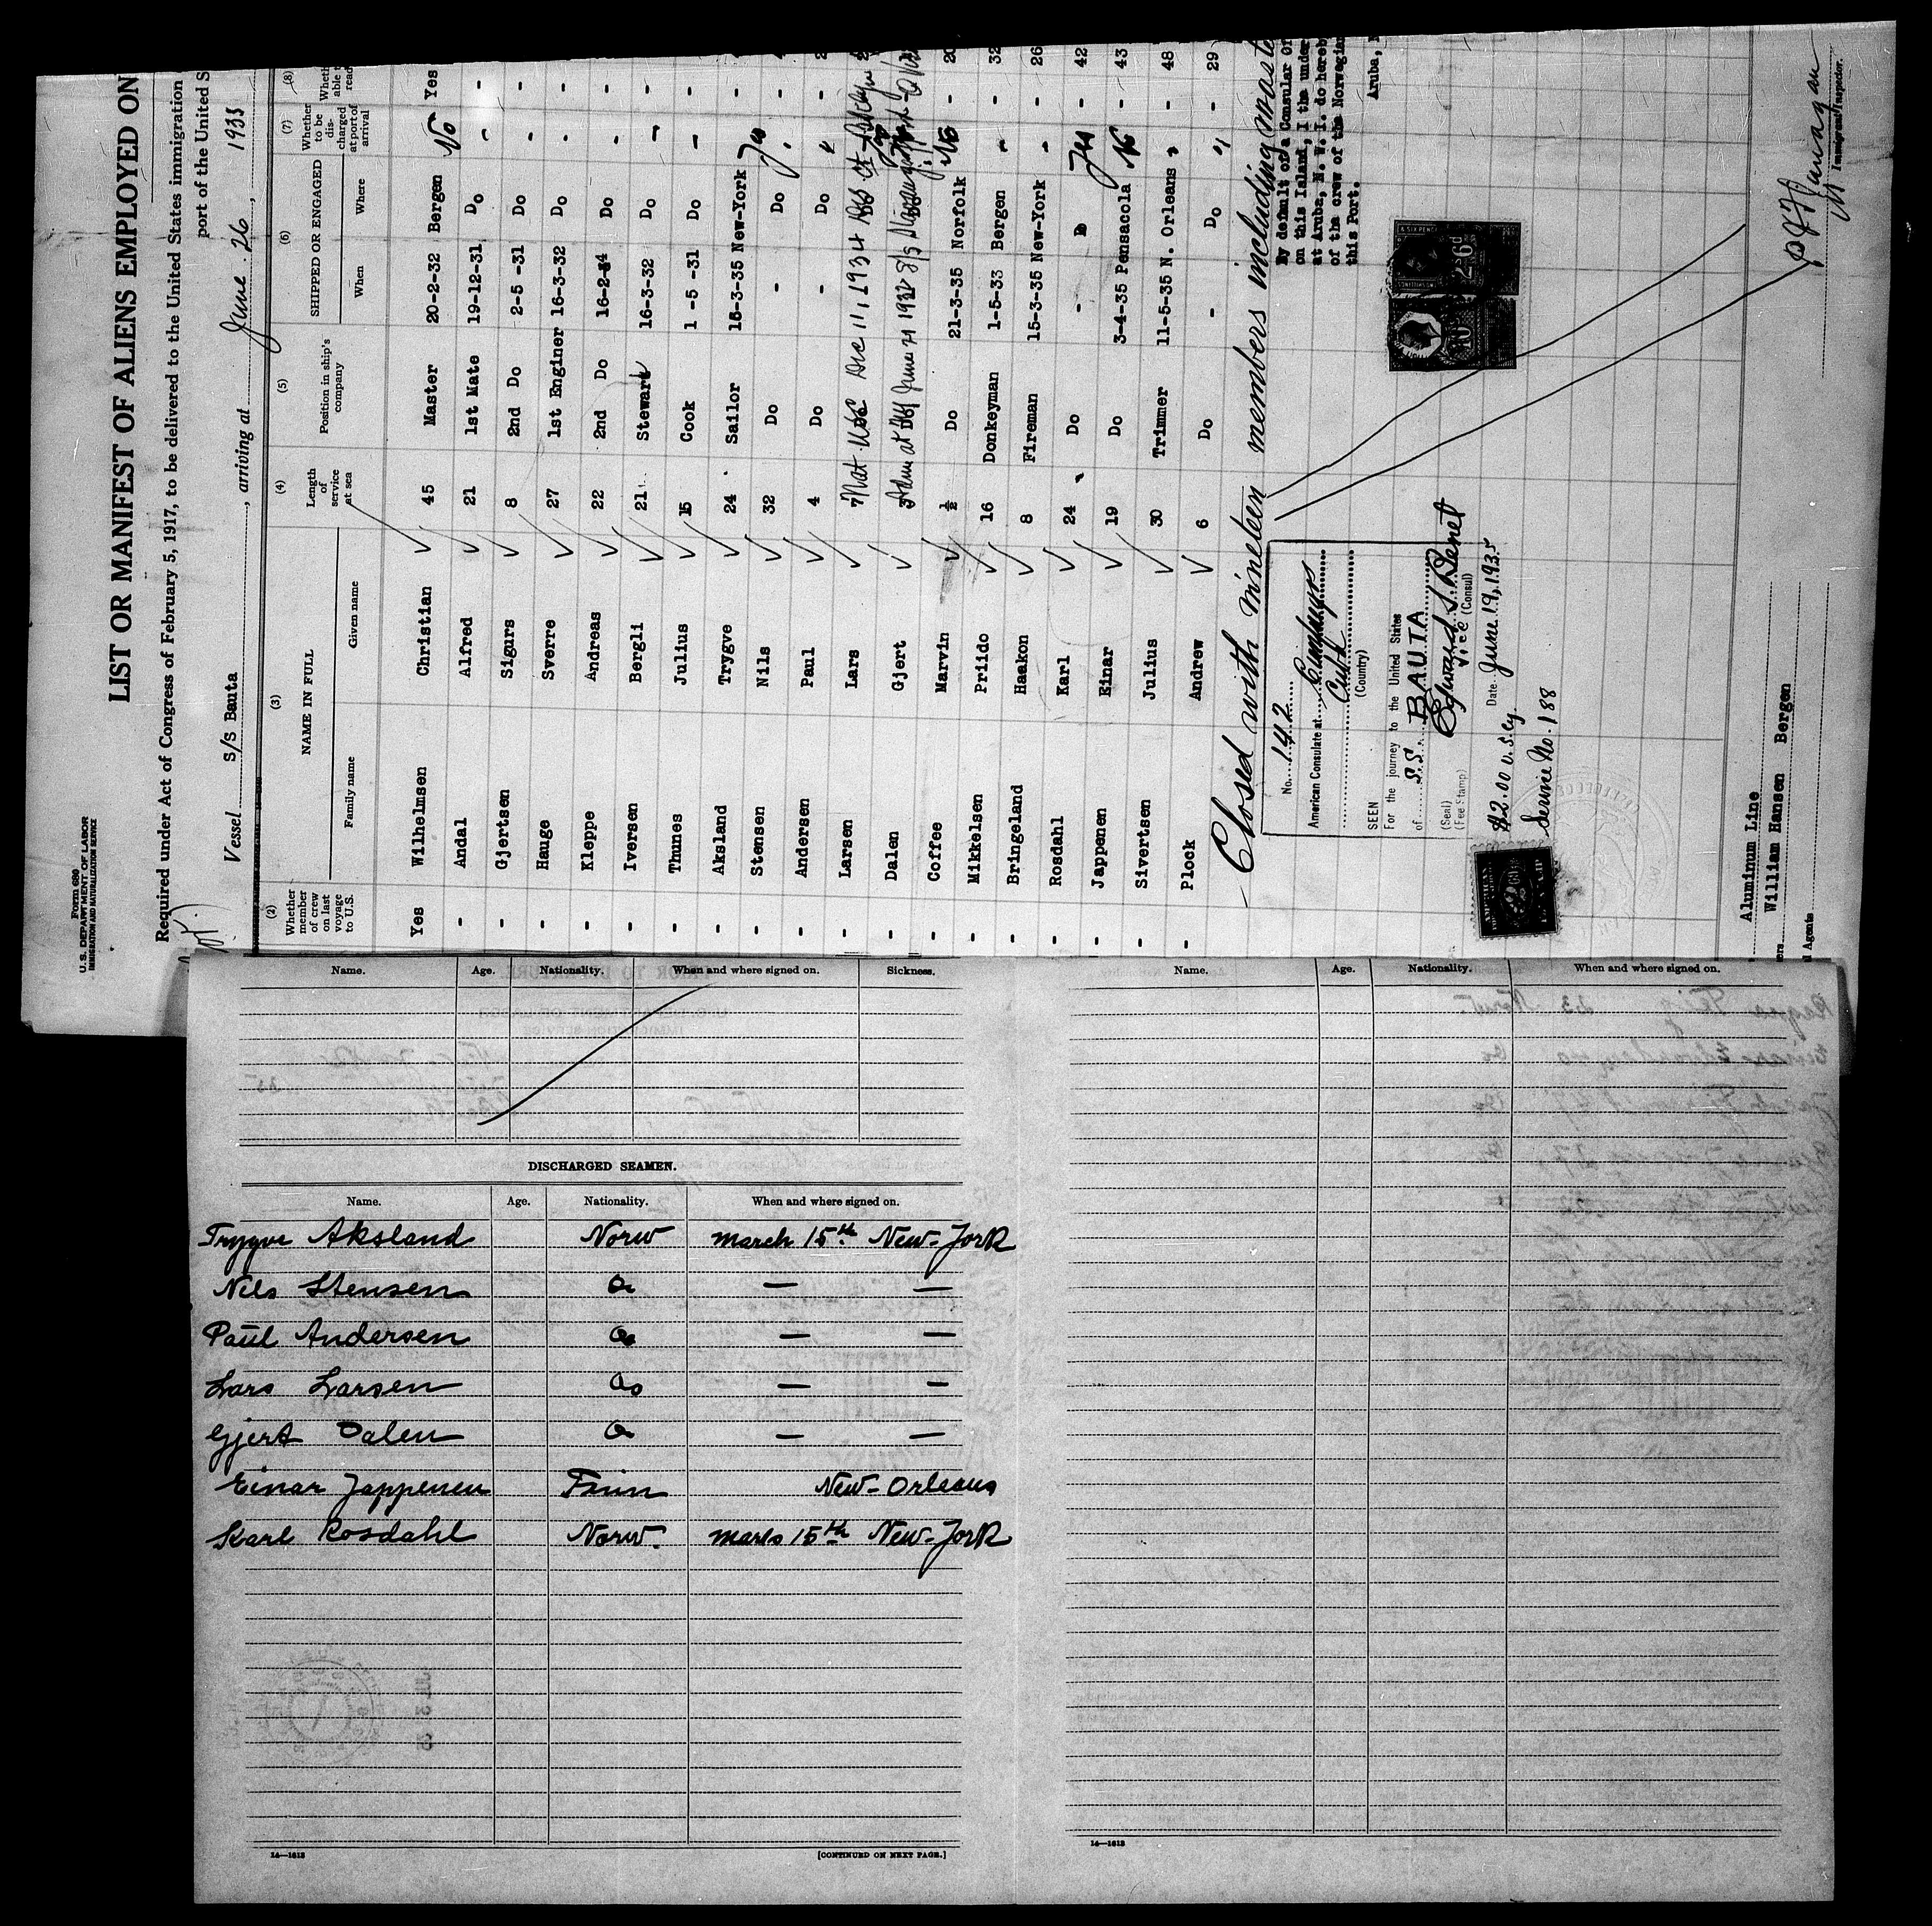 Form 689
U.S. DEPARTMENT OF LABOR
IMMIGRATION AND NATURALIZATION SERVICE
LIST OR MANIFEST OF ALIENS EMPLOYED ON
Required under Act of Congress of February 5, 1917, to be delivered to the United States immigration
port of the United S
Vessel s/s Bauta, arriving at June 26, 1935
(2) (3) (4) (5) (6) (7) (8)
Whether member of crew on last voyage to U.S. NAME IN FULL Length of service at sea Position in ship's company SHIPPED OR ENGAGED Whether to be discharged at port of arrival
Family name Given name When Where
Yes Wilhelmsen Christian 45 Master 20-2-32 Bergen No Yes
- Andal Alfred 21 1st Mate 19-12-31 Do - -
- Gjertsen Sigurs 8 2nd Do 2-5 -31 Do - -
- Hauge Sverre 27 1st Enginer 16-3-32 Do - -
- Kleppe Andreas 22 2nd Do Do - -
- Iversen Bergli 21 Steward 16-3-32 Do - -
- Thunes Julius 15 Cook 1 -5 -31 Do - -
- Aksland Trygve 24 Sailor 15-3-35 New-York Yes -
- Stensen Nils 32 Do - Do -
- Andersen Paul 4 Do - Do " -
- Larsen Lars 7 Dec 11, 1934
- Dalen Gjert June 21
- Coffee Marvin ½ Do 21-3-35 Norfolk No - 20
- Mikkelsen Priido 16 Donkeyman 1-5-33 Bergen - - 32
- Bringeland Haakon 8 Fireman 15-3-35 New-York - - 26
- Rosdahl Karl 24 Do - D Yes - 42
- Jappenen Einar 19 Do 3-4-35 Pensacola No - 43
- Sivertsen Julius 30 Trimmer 11-5-35 N. Orleans " - 48
- Plock Andrew 6 Do - Do " - 29
Closed with nineteen members including master
By default of a Consular Of
on this Island, I the under
at Aruba, N. W. I. do hereb
of the crew of the Norwegian
this Port.
Aruba,
No. 142
American Consulate at Cienfuegos
Cuba
(Country)
SEEN
For the journey to the United States
of SS. BAUTA
(Seal)
(Fee Stamp)
Vice (Consul)
$2.00 U.S.Cy. Date June 19, 1935
Service No. 188
2/6d
Aluminum Line
William Hansen Bergen
Immigrant Inspector.
Name. Age. Nationality. When and where signed on. Sickness.
DISCHARGED SEAMEN.
Name. Age. Nationality. When and where signed on.
Trygve Aksland Norw march 15th New-York
Nils Stensen Do — —
Paul Andersen Do — —
Lars Larsen Do — —
Gjert Dalen Do — —
Einar Jappenen Finn New-Orleans
Karl Rosdahl Norw. mars 15th New-York
14—1613
[CONTINUED ON NEXT PAGE.]
Name. Age. Nationality. When and where signed on.
14—1613